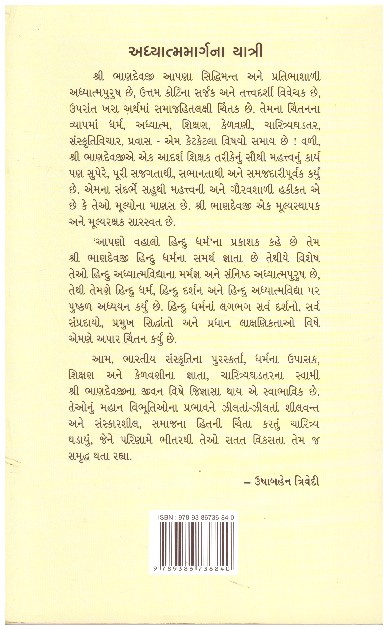 અધ્યાત્મમાર્ગના યાત્રી
શ્રી ભાણદેવજી આપણા સિદ્ધિમન્ત અને પ્રતિભાશાળી
અધ્યાત્મપુરુષ છે, ઉત્તમ કોટિના સર્જક અને તત્ત્વદર્શી વિવેચક છે,
ઉપરાંત ખરા અર્થમાં સમાજહિતલક્ષી ચિંતક છે. તેમના ચિંતનના
વ્યાપમાં ધર્મ, અધ્યાત્મ, શિક્ષણ, કેળવણી, ચારિત્ર્યઘડતર,
સંસ્કૃતિવિચાર, પ્રવાસ - એમ કેટકેટલા વિષયો સમાય છે ! વળી,
શ્રી ભાણદેવજીએ એક આદર્શ શિક્ષક તરીકેનું સૌથી મહત્ત્વનું કાર્ય
પણ સુપેરે, પૂરી સજગતાથી, સભાનતાથી અને સમજદારીપૂર્વક કર્યું
છે. એમના સંદર્ભે સહુથી મહત્ત્વની અને ગૌરવશાળી હકીકત એ
છે કે તેઓ મૂલ્યોના માણસ છે. શ્રી ભાણદેવજી એક મૂલ્યસ્થાપક
અને મૂલ્યરક્ષક સારસ્વત છે.
‘આપણો વહાલો હિન્દુ ધર્મ’ના પ્રકાશક કહે છે તેમ
શ્રી ભાણદેવજી હિન્દુ ધર્મના સમર્થ જ્ઞાતા છે તેથીયે વિશેષ
તેઓ હિન્દુ અધ્યાત્મવિદ્યાના મર્મજ્ઞ અને સંનિષ્ઠ અધ્યાત્મપુરુષ છે,
તેથી તેમણે હિન્દુ ધર્મ, હિન્દુ દર્શન અને હિન્દુ અધ્યાત્મવિદ્યા પર
પુષ્કળ અધ્યયન કર્યું છે. હિન્દુ ધર્મનાં લગભગ સર્વ દર્શનો, સર્વ
સંપ્રદાયો, પ્રમુખ સિદ્ધાંતો અને પ્રધાન લાક્ષણિકતાઓ વિષે
એમણે અપાર ચિંતન કર્યું છે.
આમ, ભારતીય સંસ્કૃતિના પુરસ્કર્તા, ધર્મના ઉપાસક,
શિક્ષણ અને કેળવણીના જ્ઞાતા, ચારિત્ર્યઘડતરના સ્વામી
શ્રી ભાણદેવજીના જીવન વિષે જિજ્ઞાસા થાય એ સ્વાભાવિક છે.
તેઓનું મહાન વિભૂતિઓના પ્રભાવને ઝીલતાં-ઝીલતાં શીલવન્ત
અને સંસ્કારશીલ, સમાજના હિતની ચિંતા કરતું ચારિત્ર્ય
ઘડાયું, જેને પરિણામે ભીતરથી તેઓ સતત વિકસતા તેમ જ
સમૃદ્ધ થતા રહ્યા.
– ઉષાબહેન ત્રિવેદી
ISBN : 978 93 86736 84 0
9789386736840